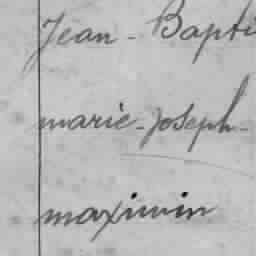 Jean-Bapti
marie-Joseph-
maximin